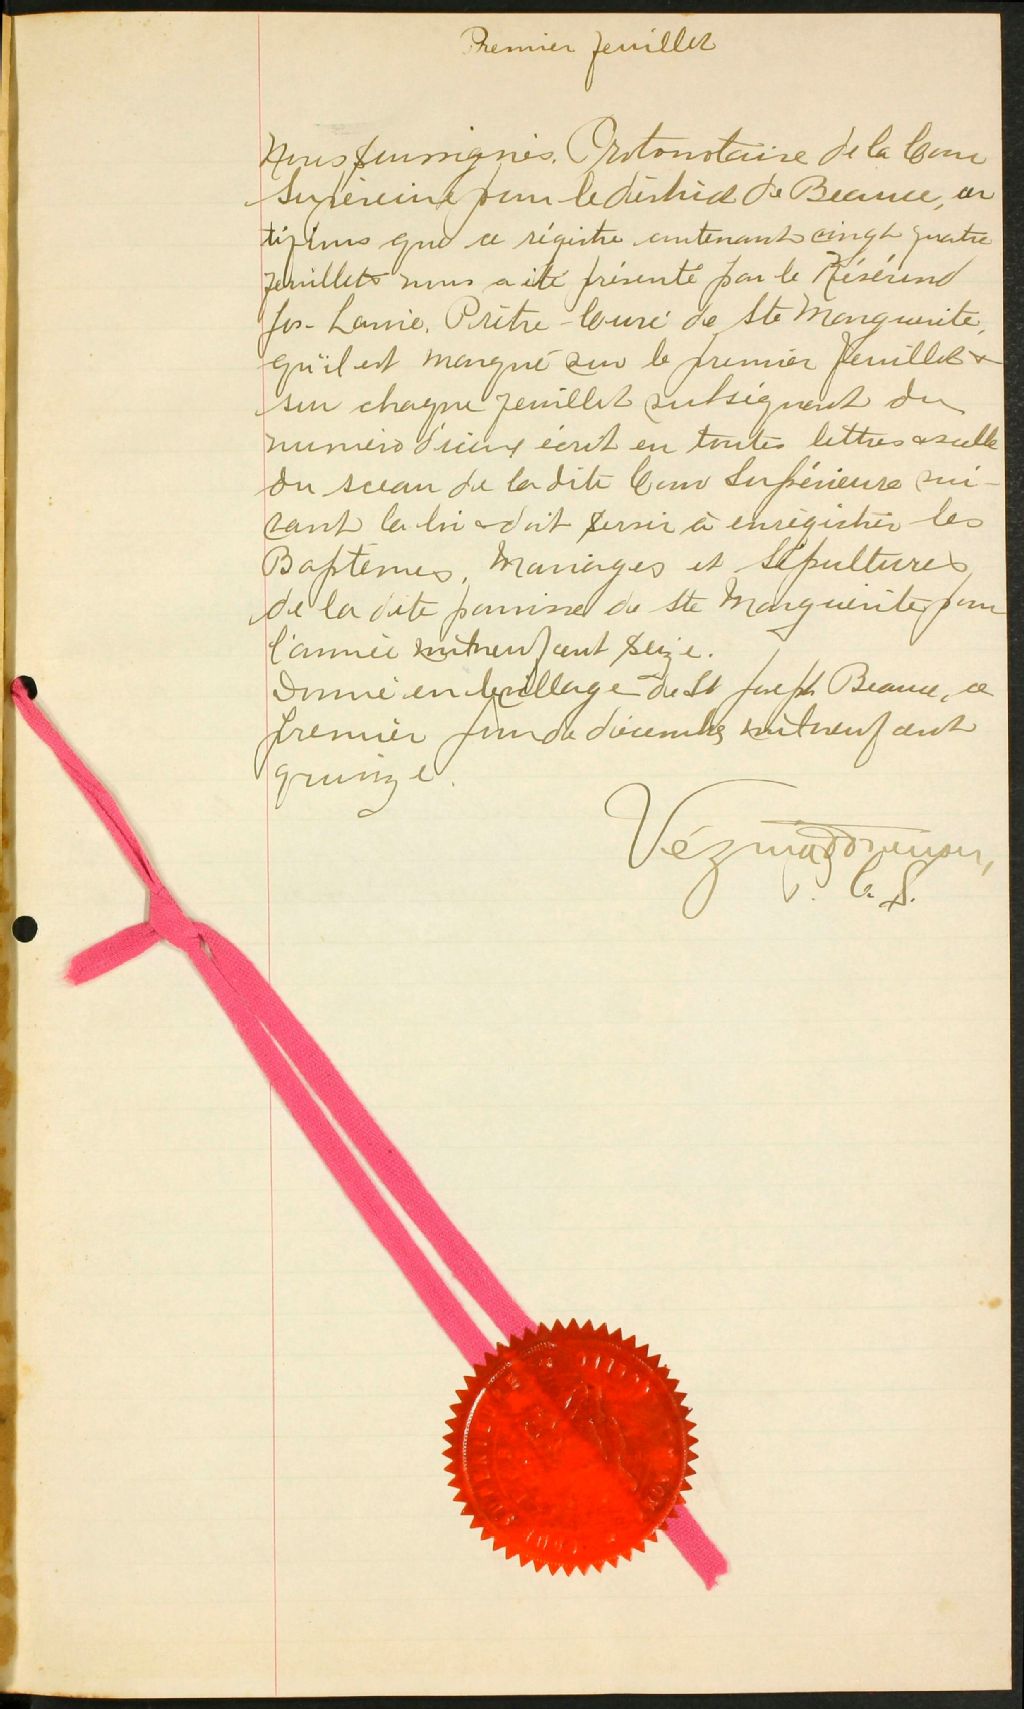 Premier feuillet
Nous Soussignés, Protonotaire de la Cour
Supérieure pour le district de Beauce, cer
tifions que ce régistre contenant vingt quatre
feuillets nous a été présenté par le Révérend
Jos. Lavoie, Prêtre-Curé de Ste Marguerite,
qu'il est marqué sur le premier feuillet &
sur chaque feuillet subséquent du
numéro d'icelui écrit en toutes lettres & scellé
du sceau de la dite Cour Supérieure sui-
vant la loi & doit servir à enrégistrer les
Baptêmes, Mariages et Sépultures
de la dite paroisse de Ste Marguerite pour
l'année mil neuf cent seize.
Donné en le village de St Joseph Beauce, ce
premier jour de décembre mil neuf cent
quinze.
Vézina
C. S.